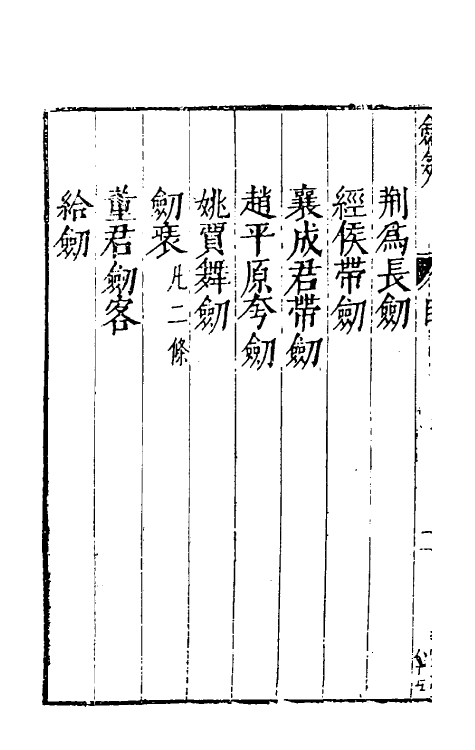 荆爲長劒
經侯帶劒
襄成君帶劒
趙平原夸劒
姚賈舞劒
劒裘凡二條
董君劒客
給劒